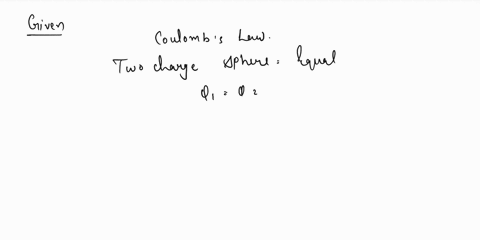 Given
Coulomb's Law.
Two charge sphere = Equal
Q₁ = Q₂